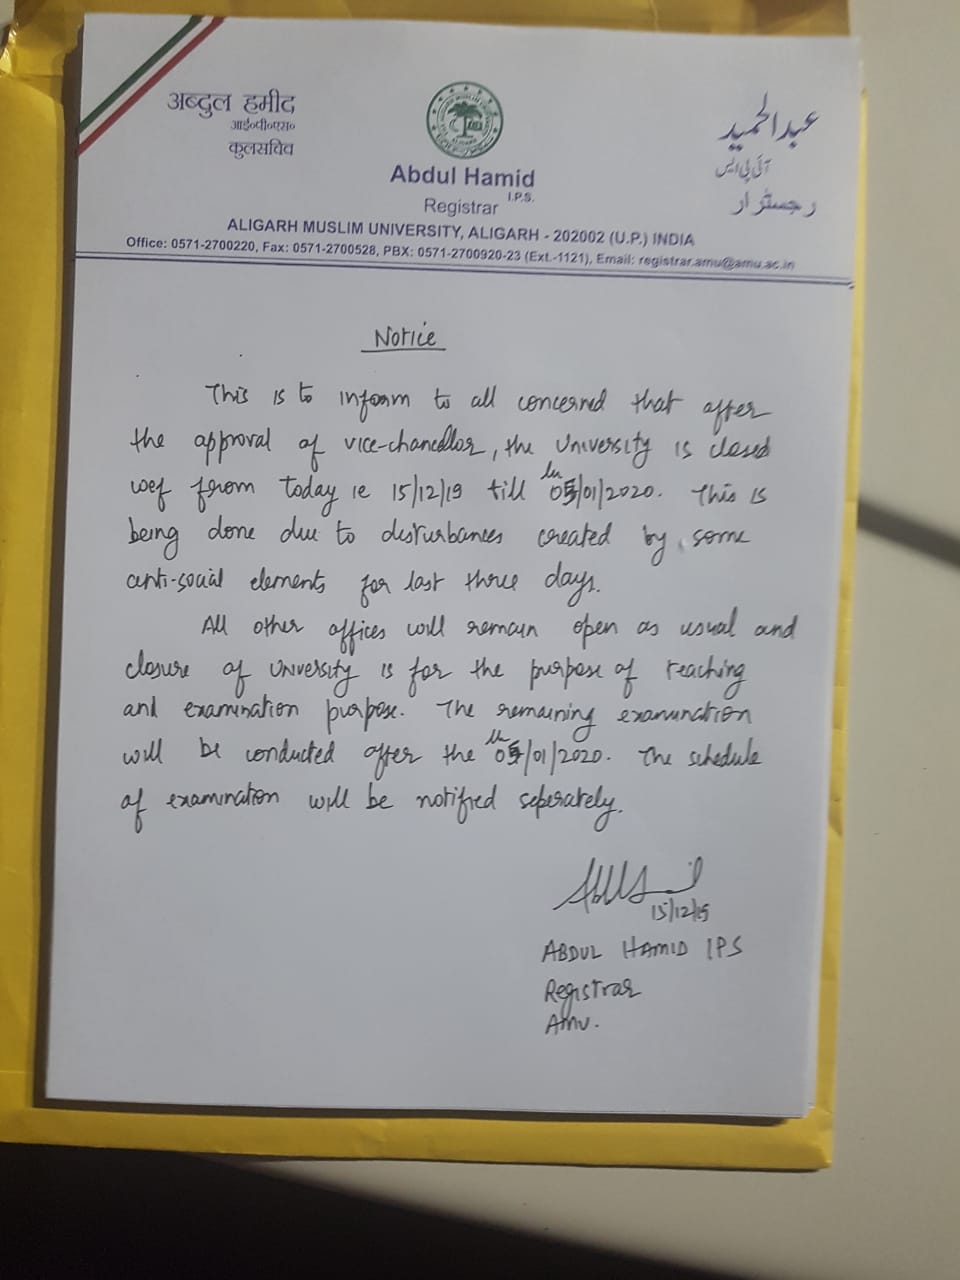 अब्दुल हमीद
आई०पी०एस०
कुलसचिव
Abdul Hamid
I.P.S.
Registrar
عبدالحمید
آئی پی ایس
رجسٹرار
ALIGARH MUSLIM UNIVERSITY, ALIGARH - 202002 (U.P.) INDIA
Office: 0571-2700220, Fax: 0571-2700528, PBX: 0571-2700920-23 (Ext.-1121), Email: registrar.amu@amu.ac.in
Notice
This is to inform to all concerned that after
the approval of vice-chancellor, the University is closed
wef from today ie 15/12/19 till 05/01/2020. This is
being done due to disturbances created by some
anti-social elements for last three days.
All other offices will remain open as usual and
closure of University is for the purpose of teaching
and examination purpose. The remaining examination
will be conducted after the 05/01/2020. The schedule
of examination will be notified seperately.
15/12/19
ABDUL HAMID IPS
Registrar
AMU.